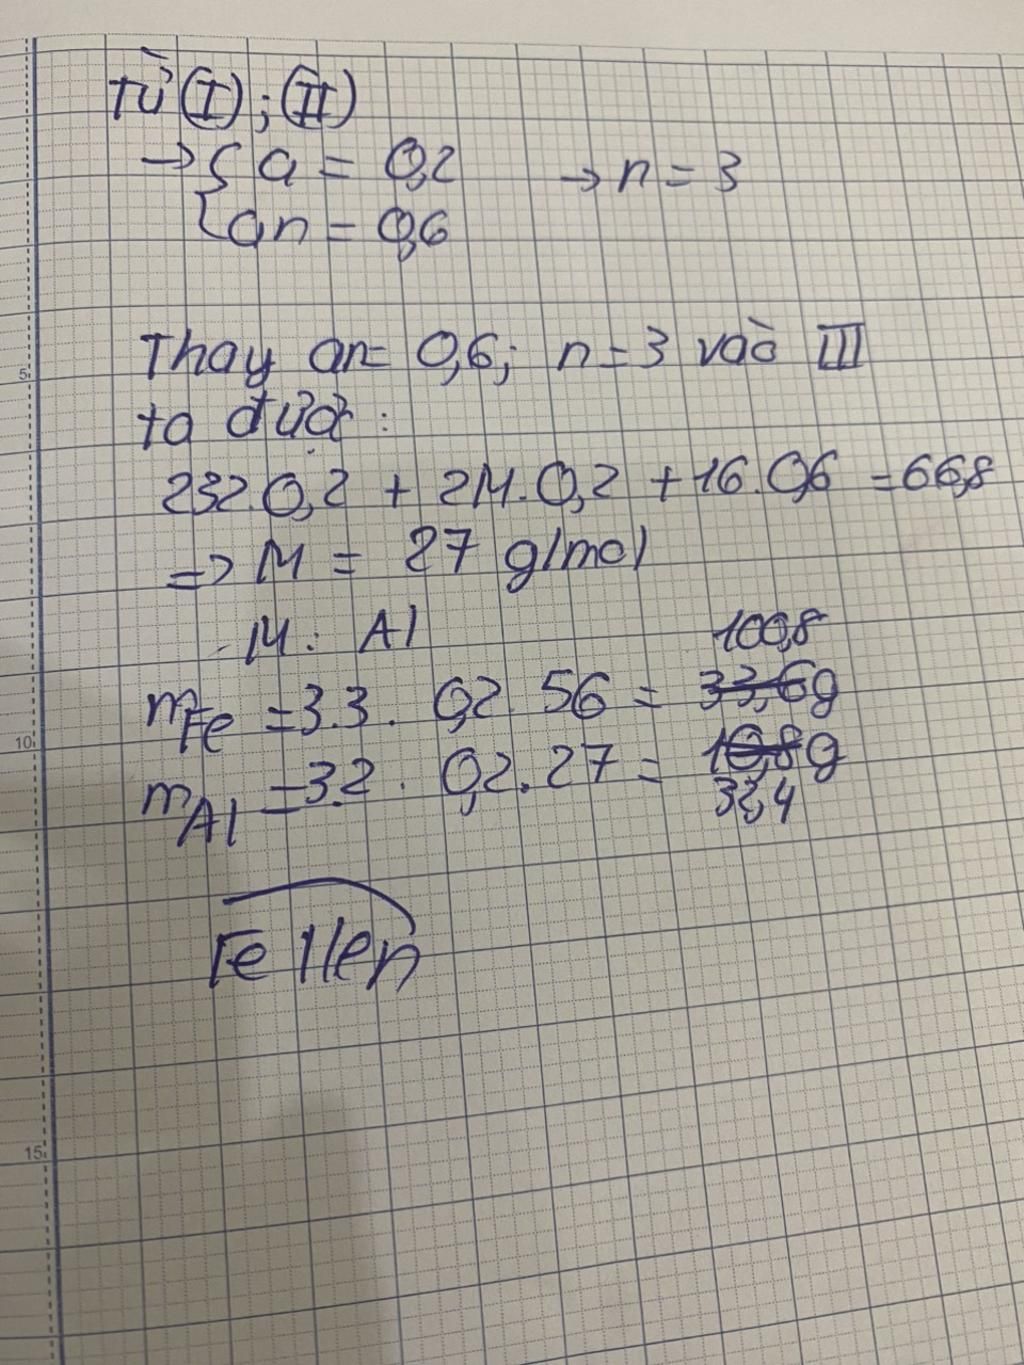 Từ (I); (II)
→ { a = 0,2 → n = 3
an = 0,6
Thay an = 0,6; n = 3 vào III
ta được:
232.0,2 + 2M.0,2 + 16.0,6 = 66,8
=> M = 27 g/mol
M: Al
100,8
mFe = 3.3. 0,2. 56 = 33,6g
mAl = 3.2. 0,2. 27 = 10,8g
32,4
5
10
15